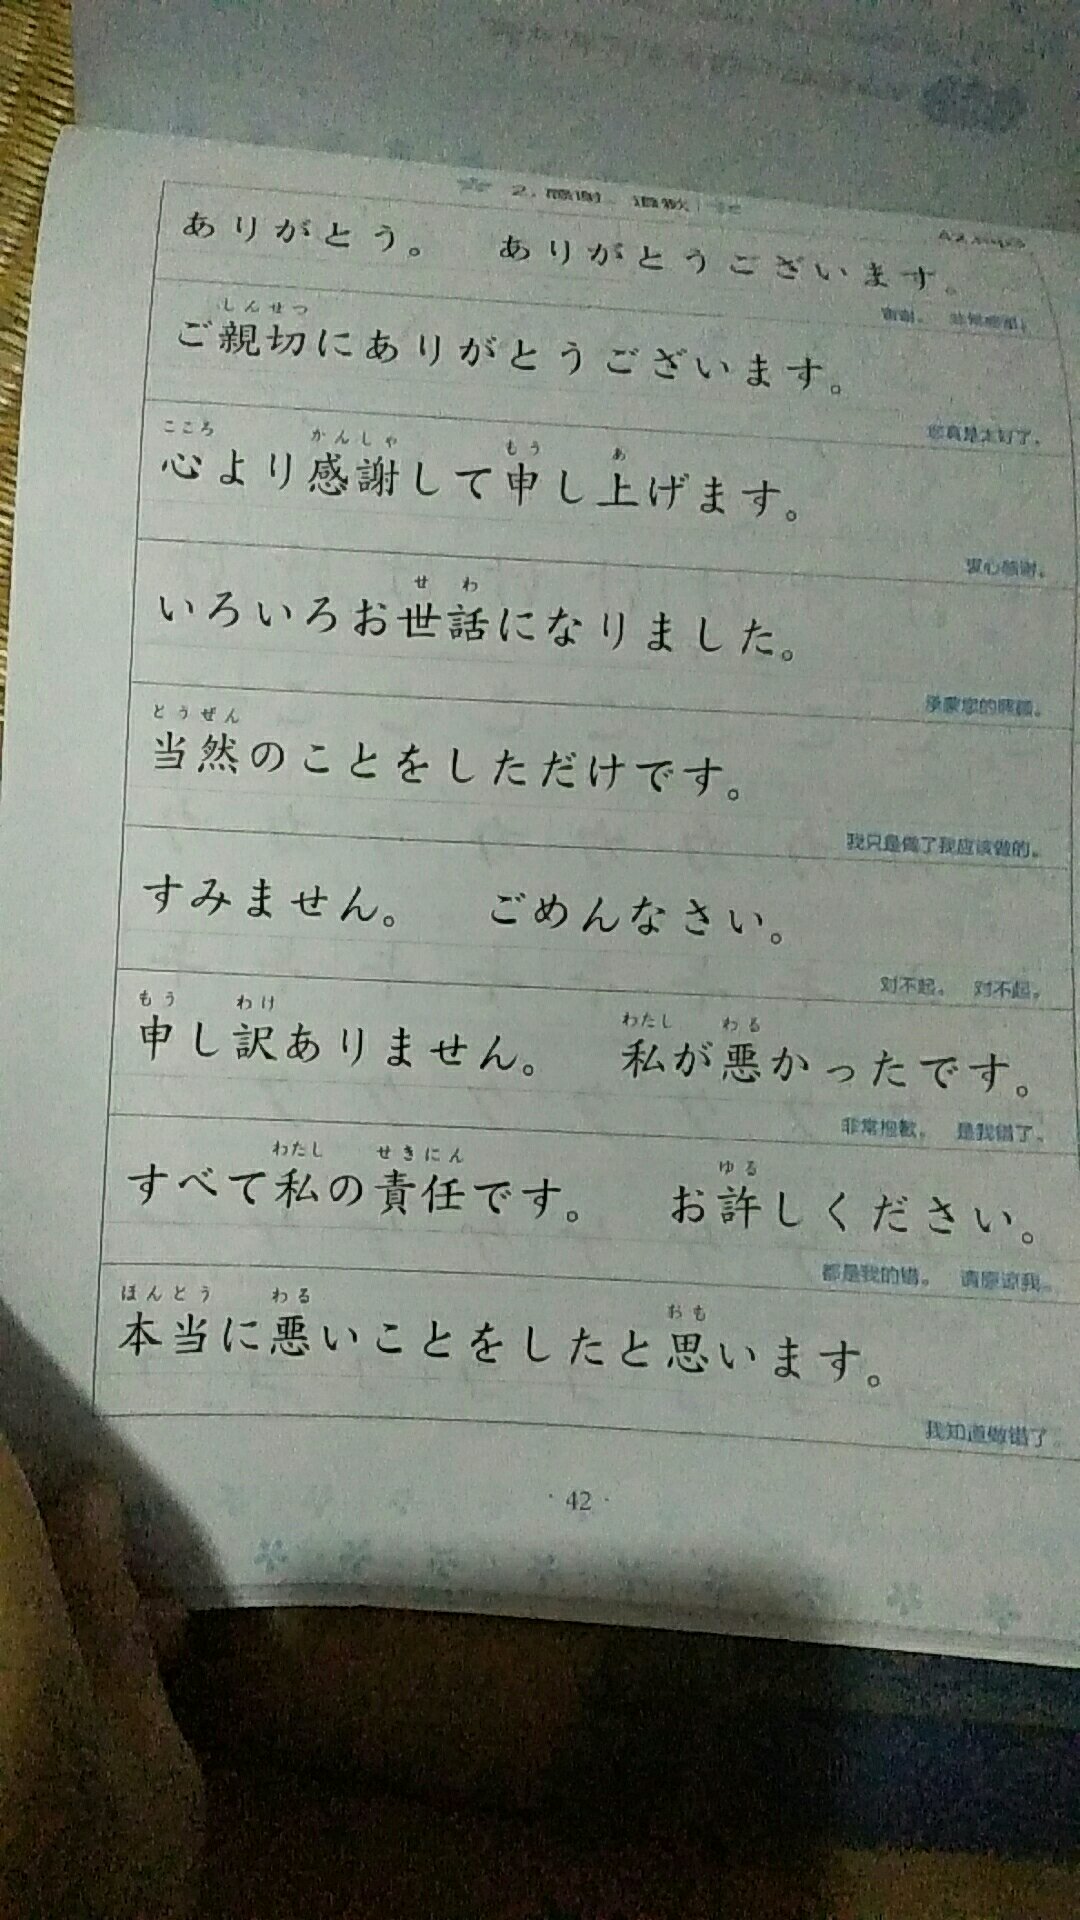 2. 感谢、道歉
ありがとう。 ありがとうございます。
しんせつ
ご親切にありがとうございます。
您真是太好了。
こころ かんしゃ もう あ
心より感謝して申し上げます。
衷心感谢。
せ わ
いろいろお世話になりました。
承蒙您的照顾。
とうぜん
当然のことをしただけです。
我只是做了我应该做的。
すみません。 ごめんなさい。
对不起。 对不起。
もう わけ わたし わる
申し訳ありません。 私が悪かったです。
非常抱歉。 是我错了。
わたし せきにん ゆる
すべて私の責任です。 お許しください。
都是我的错。 请原谅我。
ほんとう わる おも
本当に悪いことをしたと思います。
我知道做错了
· 42 ·